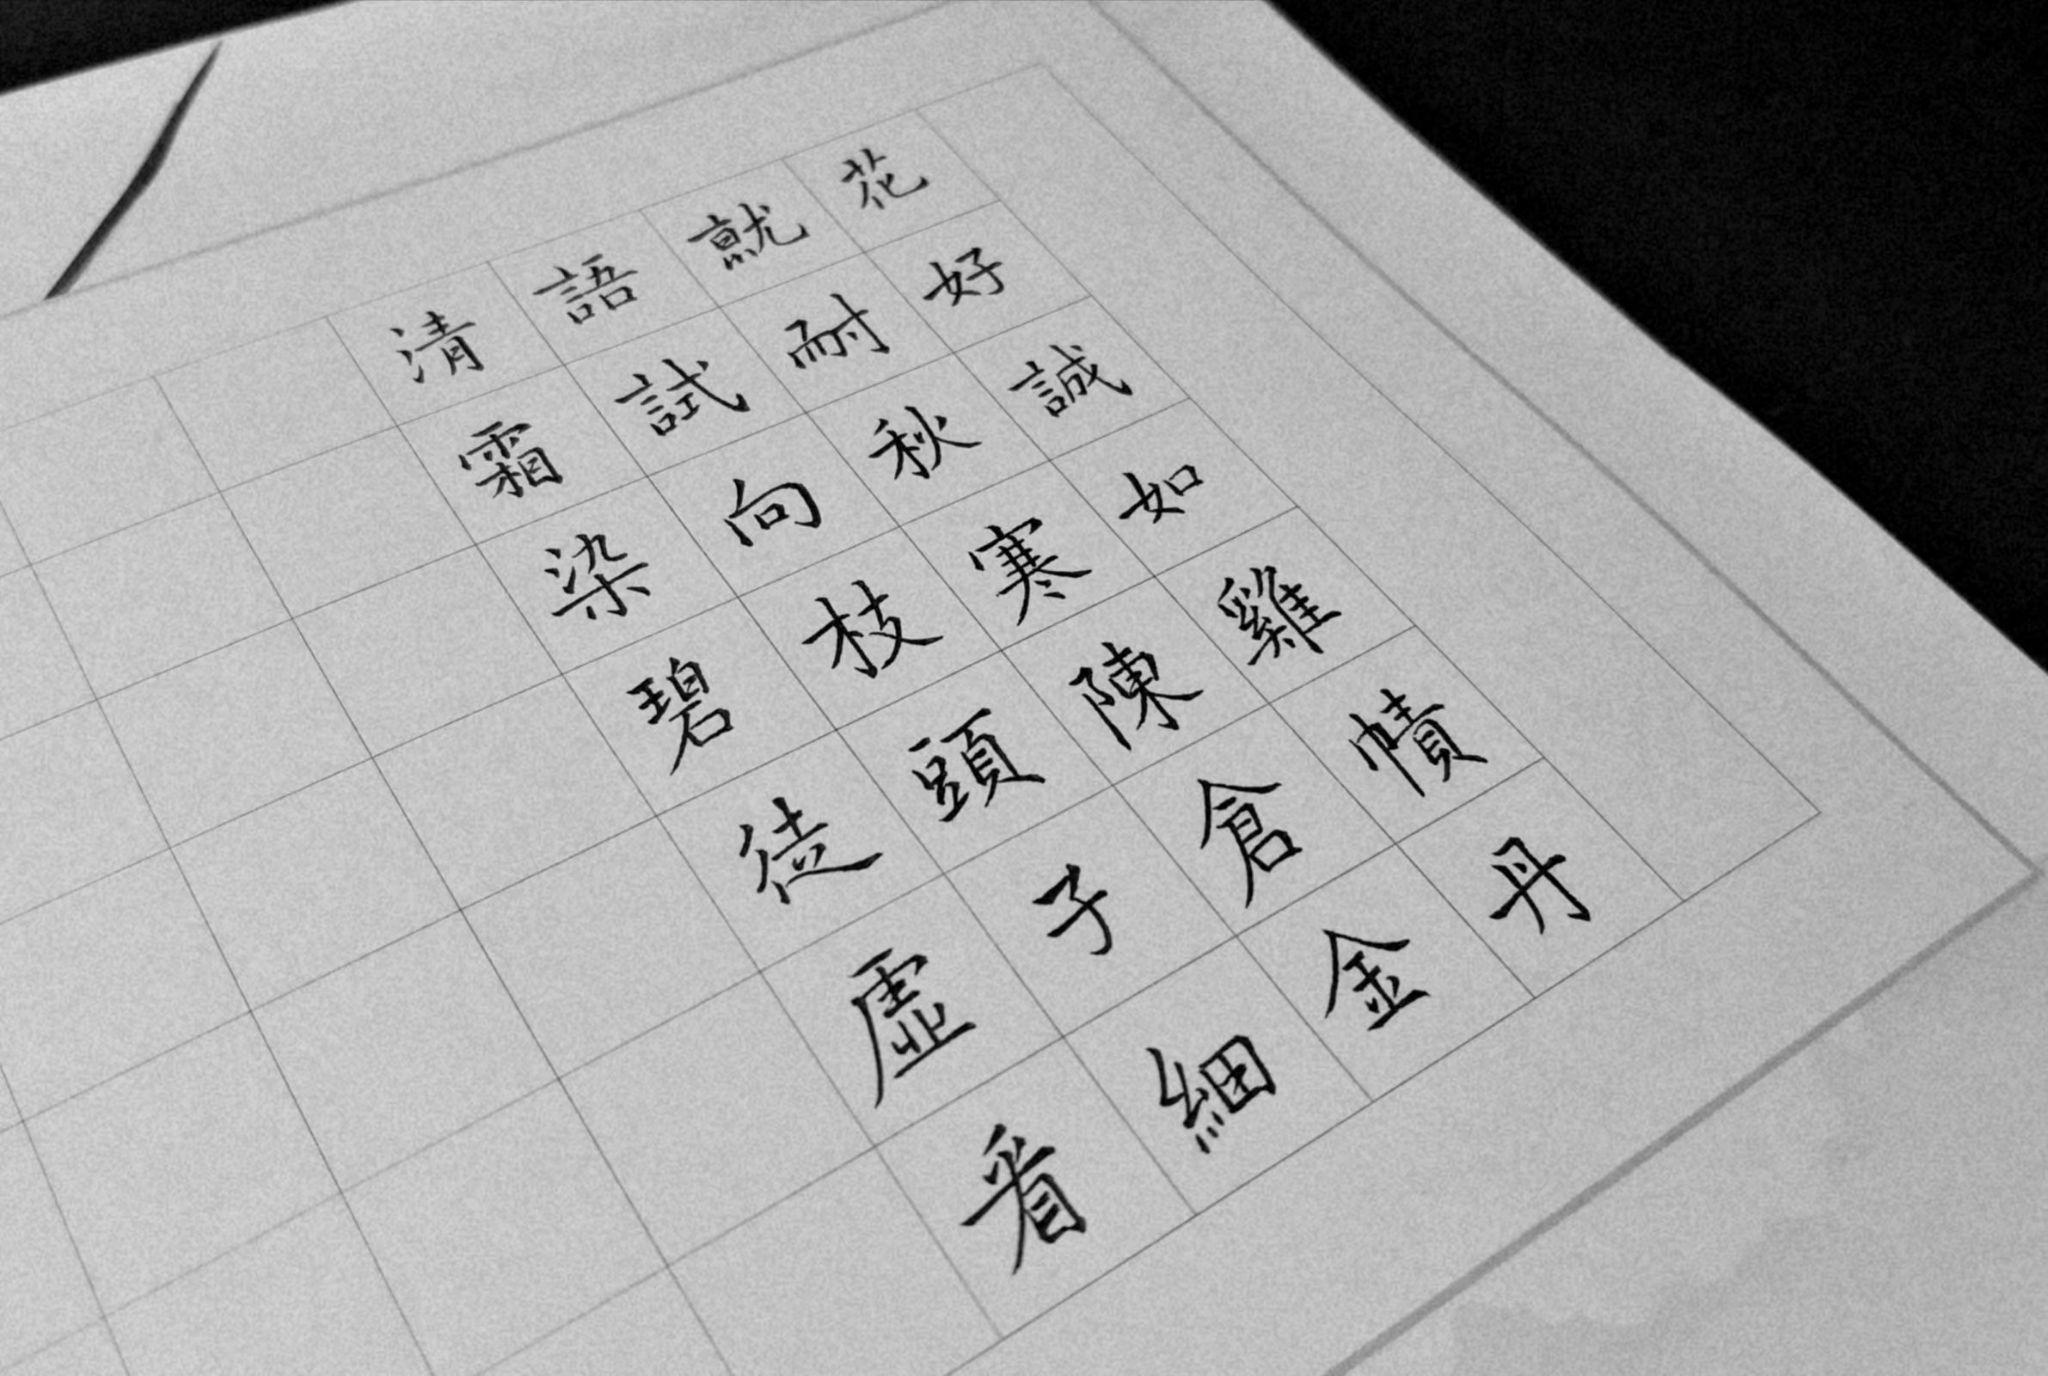 花好誠如雞幘丹
就耐秋寒陳倉金
語試向枝頭子細
清霜染碧徒虛看